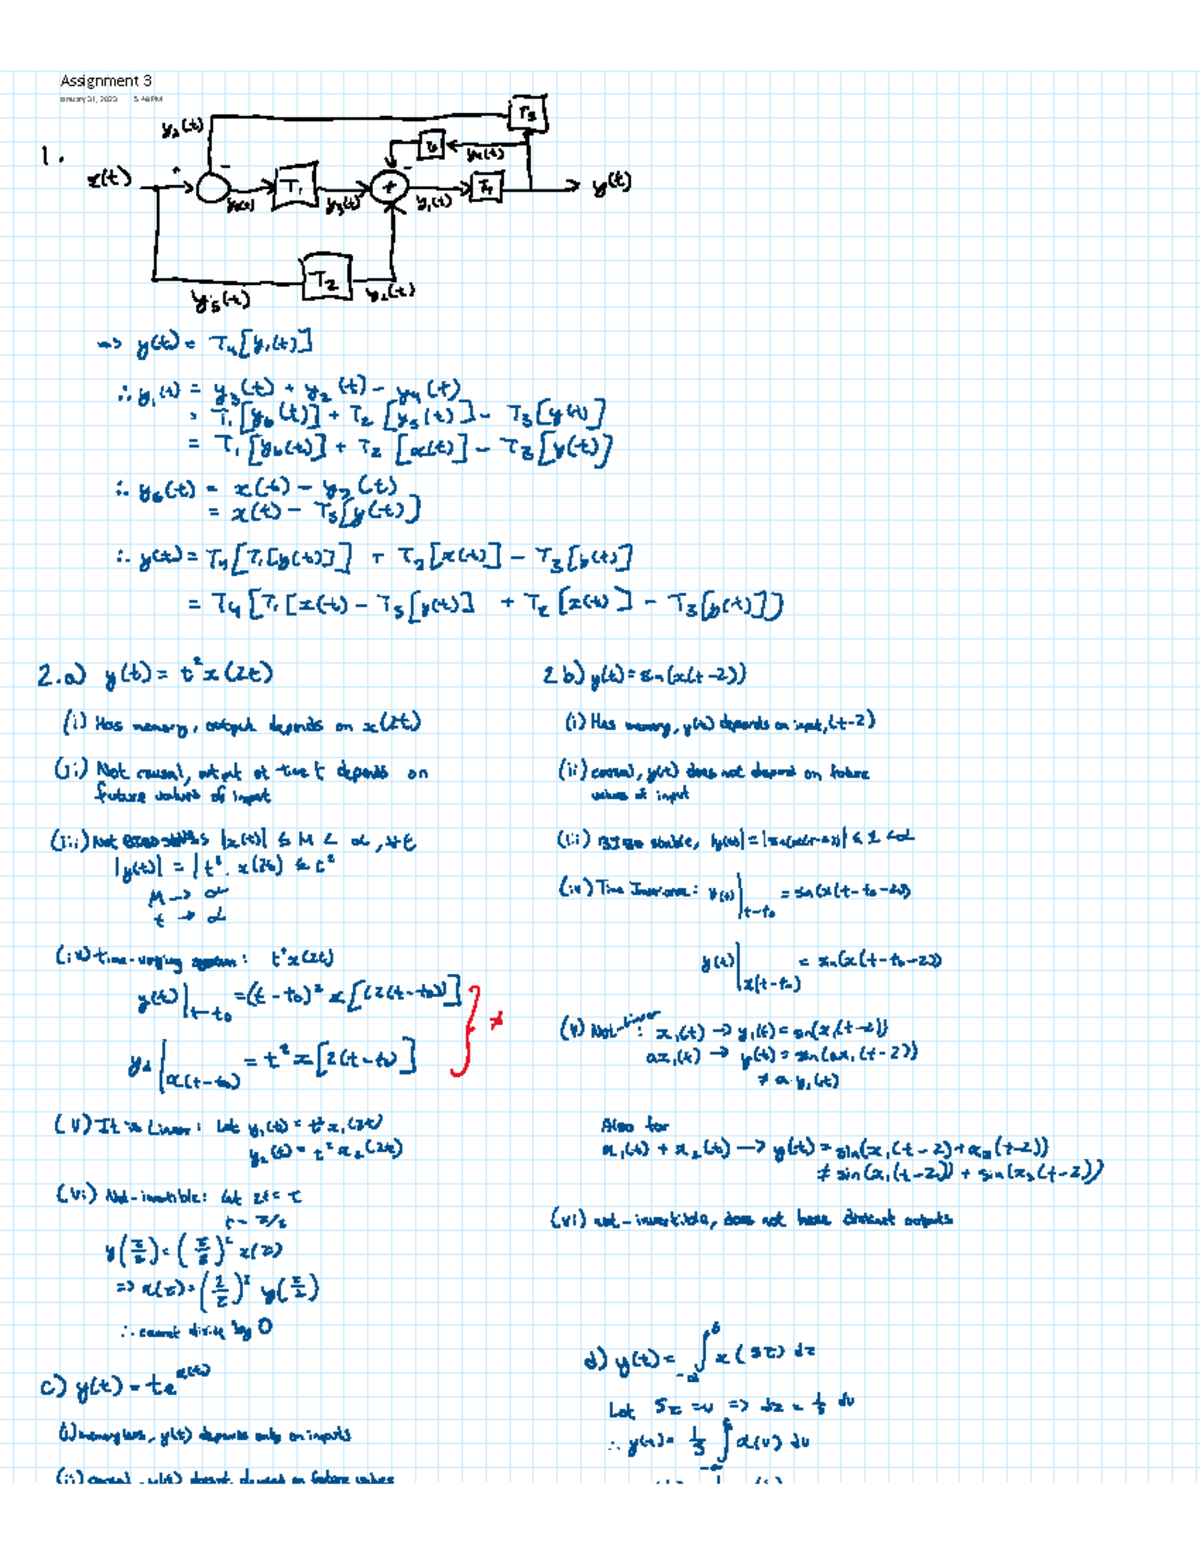 Assignment 3
1.
x(t)
+
-
T₁
T₂
T₅
y₃(t)
y₁(t)
y(t)
y₅(t)
y₂(t)
=> y(t) = T₄[y₁(t)]
∴ y₁(t) = y₃(t) + y₂(t) - y₄(t)
= T₁[y₆(t)] + T₂[y₅(t)] - T₃[y(t)]
= T₁[y₆(t)] + T₂[x(t)] - T₃[y(t)]
∴ y₆(t) = x(t) - y₇(t)
= x(t) - T₅[y(t)]
∴ y(t) = T₄[T₁[y(t)]] + T₂[x(t)] - T₃[y(t)]
= T₄[T₁[x(t) - T₅[y(t)] + T₂[x(t)] - T₃[y(t)]]
2.a) y(t) = t²x(2t)
(i) Has memory, output depends on x(2t)
(ii) Not causal, output at time t depends on
future values of input
(iii) Not BIBO stable |x(t)| ≤ M < ∞, ∀t
|y(t)| = |t². x(2t) ≤ t²
M -> ∞
t -> ∞
(iv) time-varying system: t²x(2t)
y(t)|t-t₀ = (t-t₀)² x[(2(t-t₀)]
≠
|x(t-t₀) = t² x[2(t-t₀)]
(v) It is Linear: Let y₁(t) = t²x₁(2t)
y₂(t) = t²x₂(2t)
(vi) Not-invertible: let 2t = τ
t = τ/2
y(τ/2) = (τ/2)² x(τ)
=> x(τ) = (2/τ)² y(τ/2)
∴ cannot divide by 0
c) y(t) = te^x(t)
(i) memoryless, y(t) depends only on inputs
(ii) causal, y(t) doesn't depend on future values
2 b) y(t) = sin(x(t-2))
(i) Has memory, y(t) depends on input, (t-2)
(ii) causal, y(t) does not depend on future
values of input
(iii) BIBO stable, |y(t)| = |sin(x(t-2))| ≤ 1 < ∞
(iv) Time Invariance: y(t)|t-t₀ = sin(x(t-t₀-2))
y(t)|x(t-t₀) = sin(x(t-t₀-2))
(v) Not-linear: x₁(t) -> y₁(t) = sin(x₁(t-2))
ax₁(t) -> y(t) = sin(ax₁(t-2))
≠ a·y₁(t)
Also for
x₁(t) + x₂(t) -> y(t) = sin(x₁(t-2) + x₂(t-2))
≠ sin(x₁(t-2)) + sin(x₂(t-2))
(vi) not-invertible, does not have distinct outputs
d) y(t) = ∫ x(5τ) dτ
Let 5τ = u => dτ = 1/5 du
∴ y(t) = 1/5 ∫ x(u) du